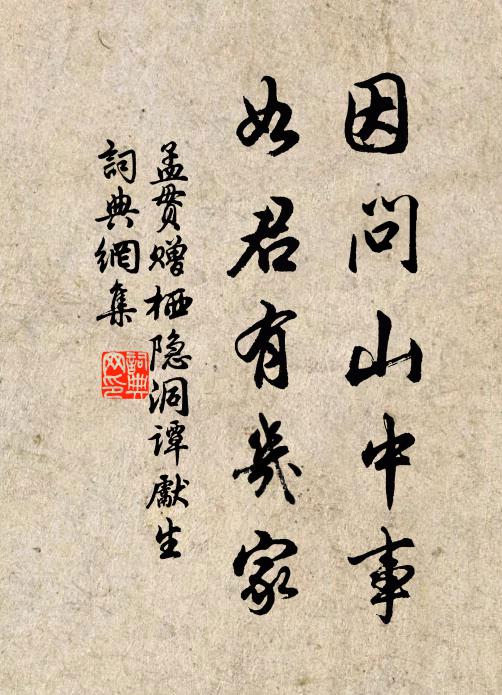 因问山中事
如君有几家
孟贯赠栖隐洞谭献生
詞典網集
詞典网印